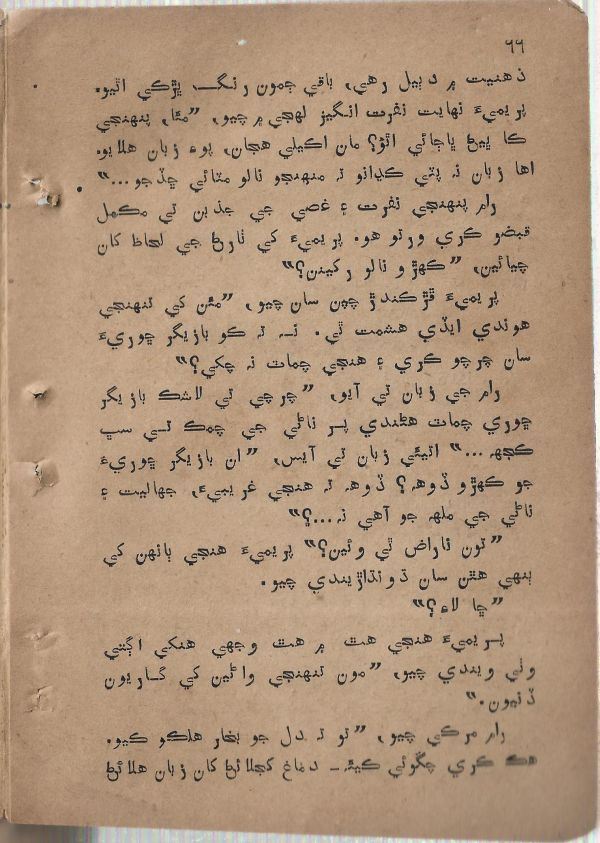 ٦٦
ذهنيت ۾ دٻيل رهي، باقي جمون رنگ، پڙڪي اٿيو.
پريميءَ نهايت نفرت انگيز لهجي ۾ چيو، ”مئا، پنهنجي
ڪا ڀيڻ ڀاڄائي اٿئو؟ مان اڪيلي هجان، پوءِ زبان هلايو.
اها زبان نہ پٽي ڪڍانو تہ منهنجو نالو مٽائي ڇڏجو...“
رام پنهنجي نفرت ۽ غصي جي جذبن تي مڪمل
قبضو ڪري ورتو هو. پريميءَ کي ٺارڻ جي لحاظ کان
چيائين، ”ڪهڙو نالو رکينن؟“
پريميءَ ڦڙڪندڙ چپن سان چيو، ”مئن کي تنهنجي
هوندي ايڏي همشت ٿي. نہ تہ ڪو بازيگر ڇوريءَ
سان چرچو ڪري ۽ هنجي چمات نہ چکي؟“
رام جي زبان تي آيو، ”چرچي تي لاشڪ بازيگر
ڇوري چمات هڻندي پر ناڻي جي چمڪ تي سڀ
ڪجهہ...“ اٿيئي زبان تي آيس، ”ان بازيگر ڇوريءَ
جو ڪهڙو ڏوهہ؟ ڏوهہ تہ هنجي غريبيءَ، جهاليت ۽
ناڻي جي ملهہ جو آهي نہ...؟“
”تون ناراض ٿي وئين؟“ پريميءَ هنجي ٻانهن کي
ٻنهي هٿن سان ڌونڌاڙيندي چيو.
”ڇا لاءِ؟“
پريميءَ هنجي هٿ ۾ هٿ وجهي هنکي اڳتي
وٺي ويندي چيو، ”مون تنهنجي واڻين کي گاريون
ڏنيون.“
رام مرڪي چيو، ”تو تہ دل جو بخار هلڪو ڪيو.
هڪ ڪري چڱوئي ڪيئہ۔ دماغ کڄلائڻ کان زبان هلائڻ